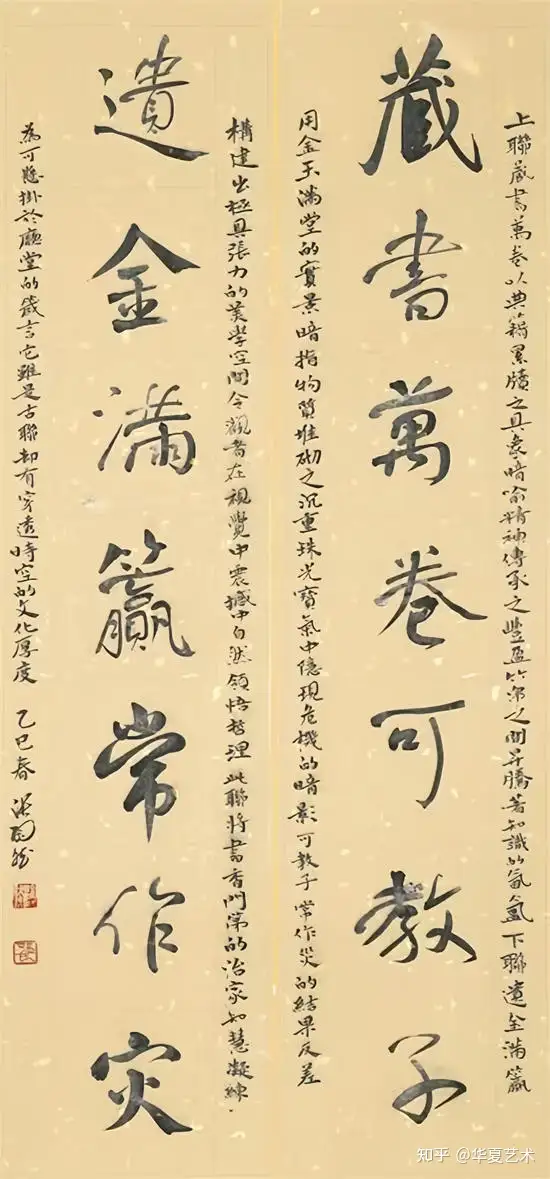 上聯藏書萬卷以典籍累牘之具象暗喻精神傳承之豐盈竹帛之間昇騰著知識的氤氳下聯遺金滿籯
藏書萬卷可教子
用金玉滿堂的實景暗指物質堆砌之沉重珠光寶氣中隱現危機的暗影可教子常作災的結果反差
構建出極具張力的美學空間令觀者在視覺中震撼中自然領悟哲理此聯將書香門第的治家智慧凝練
遺金滿籯常作灾
為可懸掛於廳堂的箴言它雖是古聯却有穿透時空的文化厚度 乙巳春
知乎 @华夏艺术